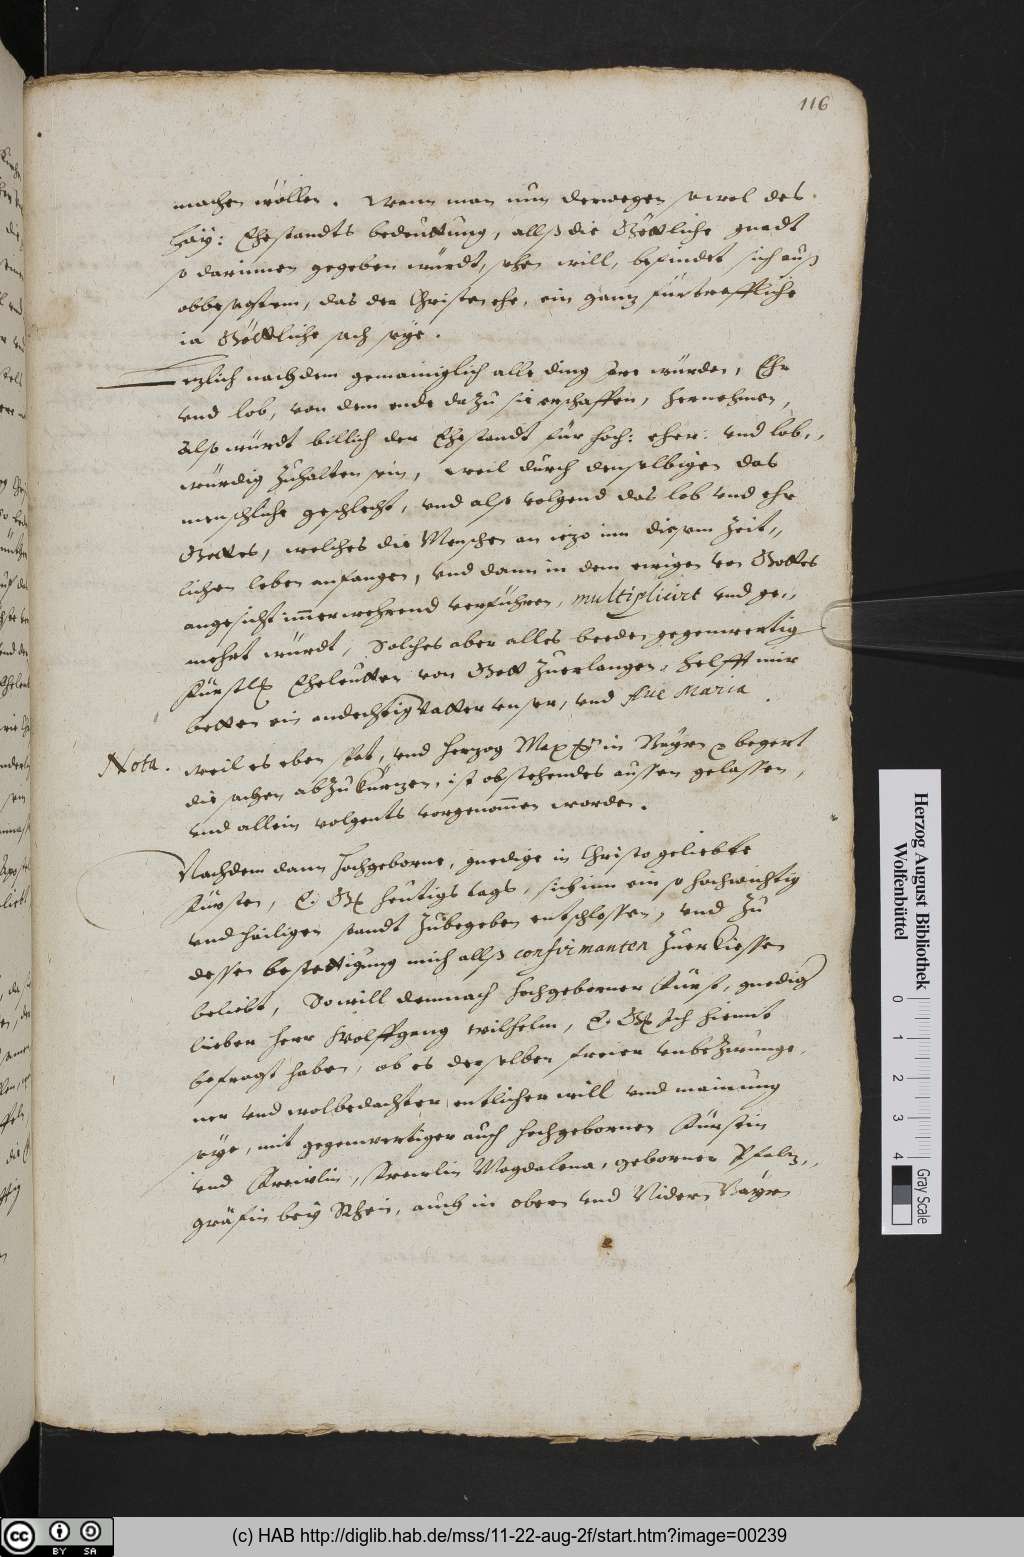 116
machen wöllen. Wenn man nun derwegen sowol des
Häy: Ehestandts bedeüttung, allß die Göttliche gnadt
so darinnen gegeben würdt, sehen will, befindet sich auß
obbesagtem, das der Christen ehe, ein gantz fürtreffliche
ia Göttliche sach seye.
Letzlich nachdem gemainiglich alle ding ire würden, Ehr
vnd lob, von dem ende dazu sie erschaffen, hernehmen,
Also würdt billich der Ehestandt für hoch: eher: vnd lob,,
würdig zuhalten sein, weil durch denselbigen das
menschliche geschlecht, vnd also volgend das lob vnd ehr
Gottes, welches die Menschen an iezo inn disem Zeit,,
lichen leben anfangen, vnd dann in dem ewigen von Gottes
angesicht immerwehrend verführen, multiplicirt vnd ge,,
mehrt würdt, Solches aber alles beeden gegenwertig
Fürstl: Eheleutten von Gott zuerlangen, helfft mir
betten ein andechtig Vatter vnser, vnd Aue Maria.
Nota. weil es eben spat, vnd Herzog Max in Bayrn begert
die sachen abzukürzen, ist obstehendes aussen gelassen,
vnd allein volgents vorgenommen worden.
Nachdem dann Hochgeborne, gnedige in Christo geliebte
Fürsten, E: G: heütigs tags, sich inn ein so hochwichtig
vnd häiligen standt zubegeben entschlossen, vnd zu
dessen bestettigung mich allß confirmanten zuerkiessen
beliebt, So will demnach hochgeborner Fürst, gnedig
lieber Herr Wolffgang Wilhelm, E: G: Ich hiemit
befragt haben, ob es derselben freier vnbezwunge,
ner vnd wolbedachter entlicher will vnd mainung
seye, mit gegenwertiger auch hochgebornen Fürstin
vnd Frewlin, Frewlin Magdalena, geborner Pfaltz,,
gräfin bey Rhein, auch in obern vnd Nidern Bayrn
Herzog August Bibliothek
Wolfenbüttel
0 1 2 3 4
Gray Scale
cc BY SA
(c) HAB http://diglib.hab.de/mss/11-22-aug-2f/start.htm?image=00239